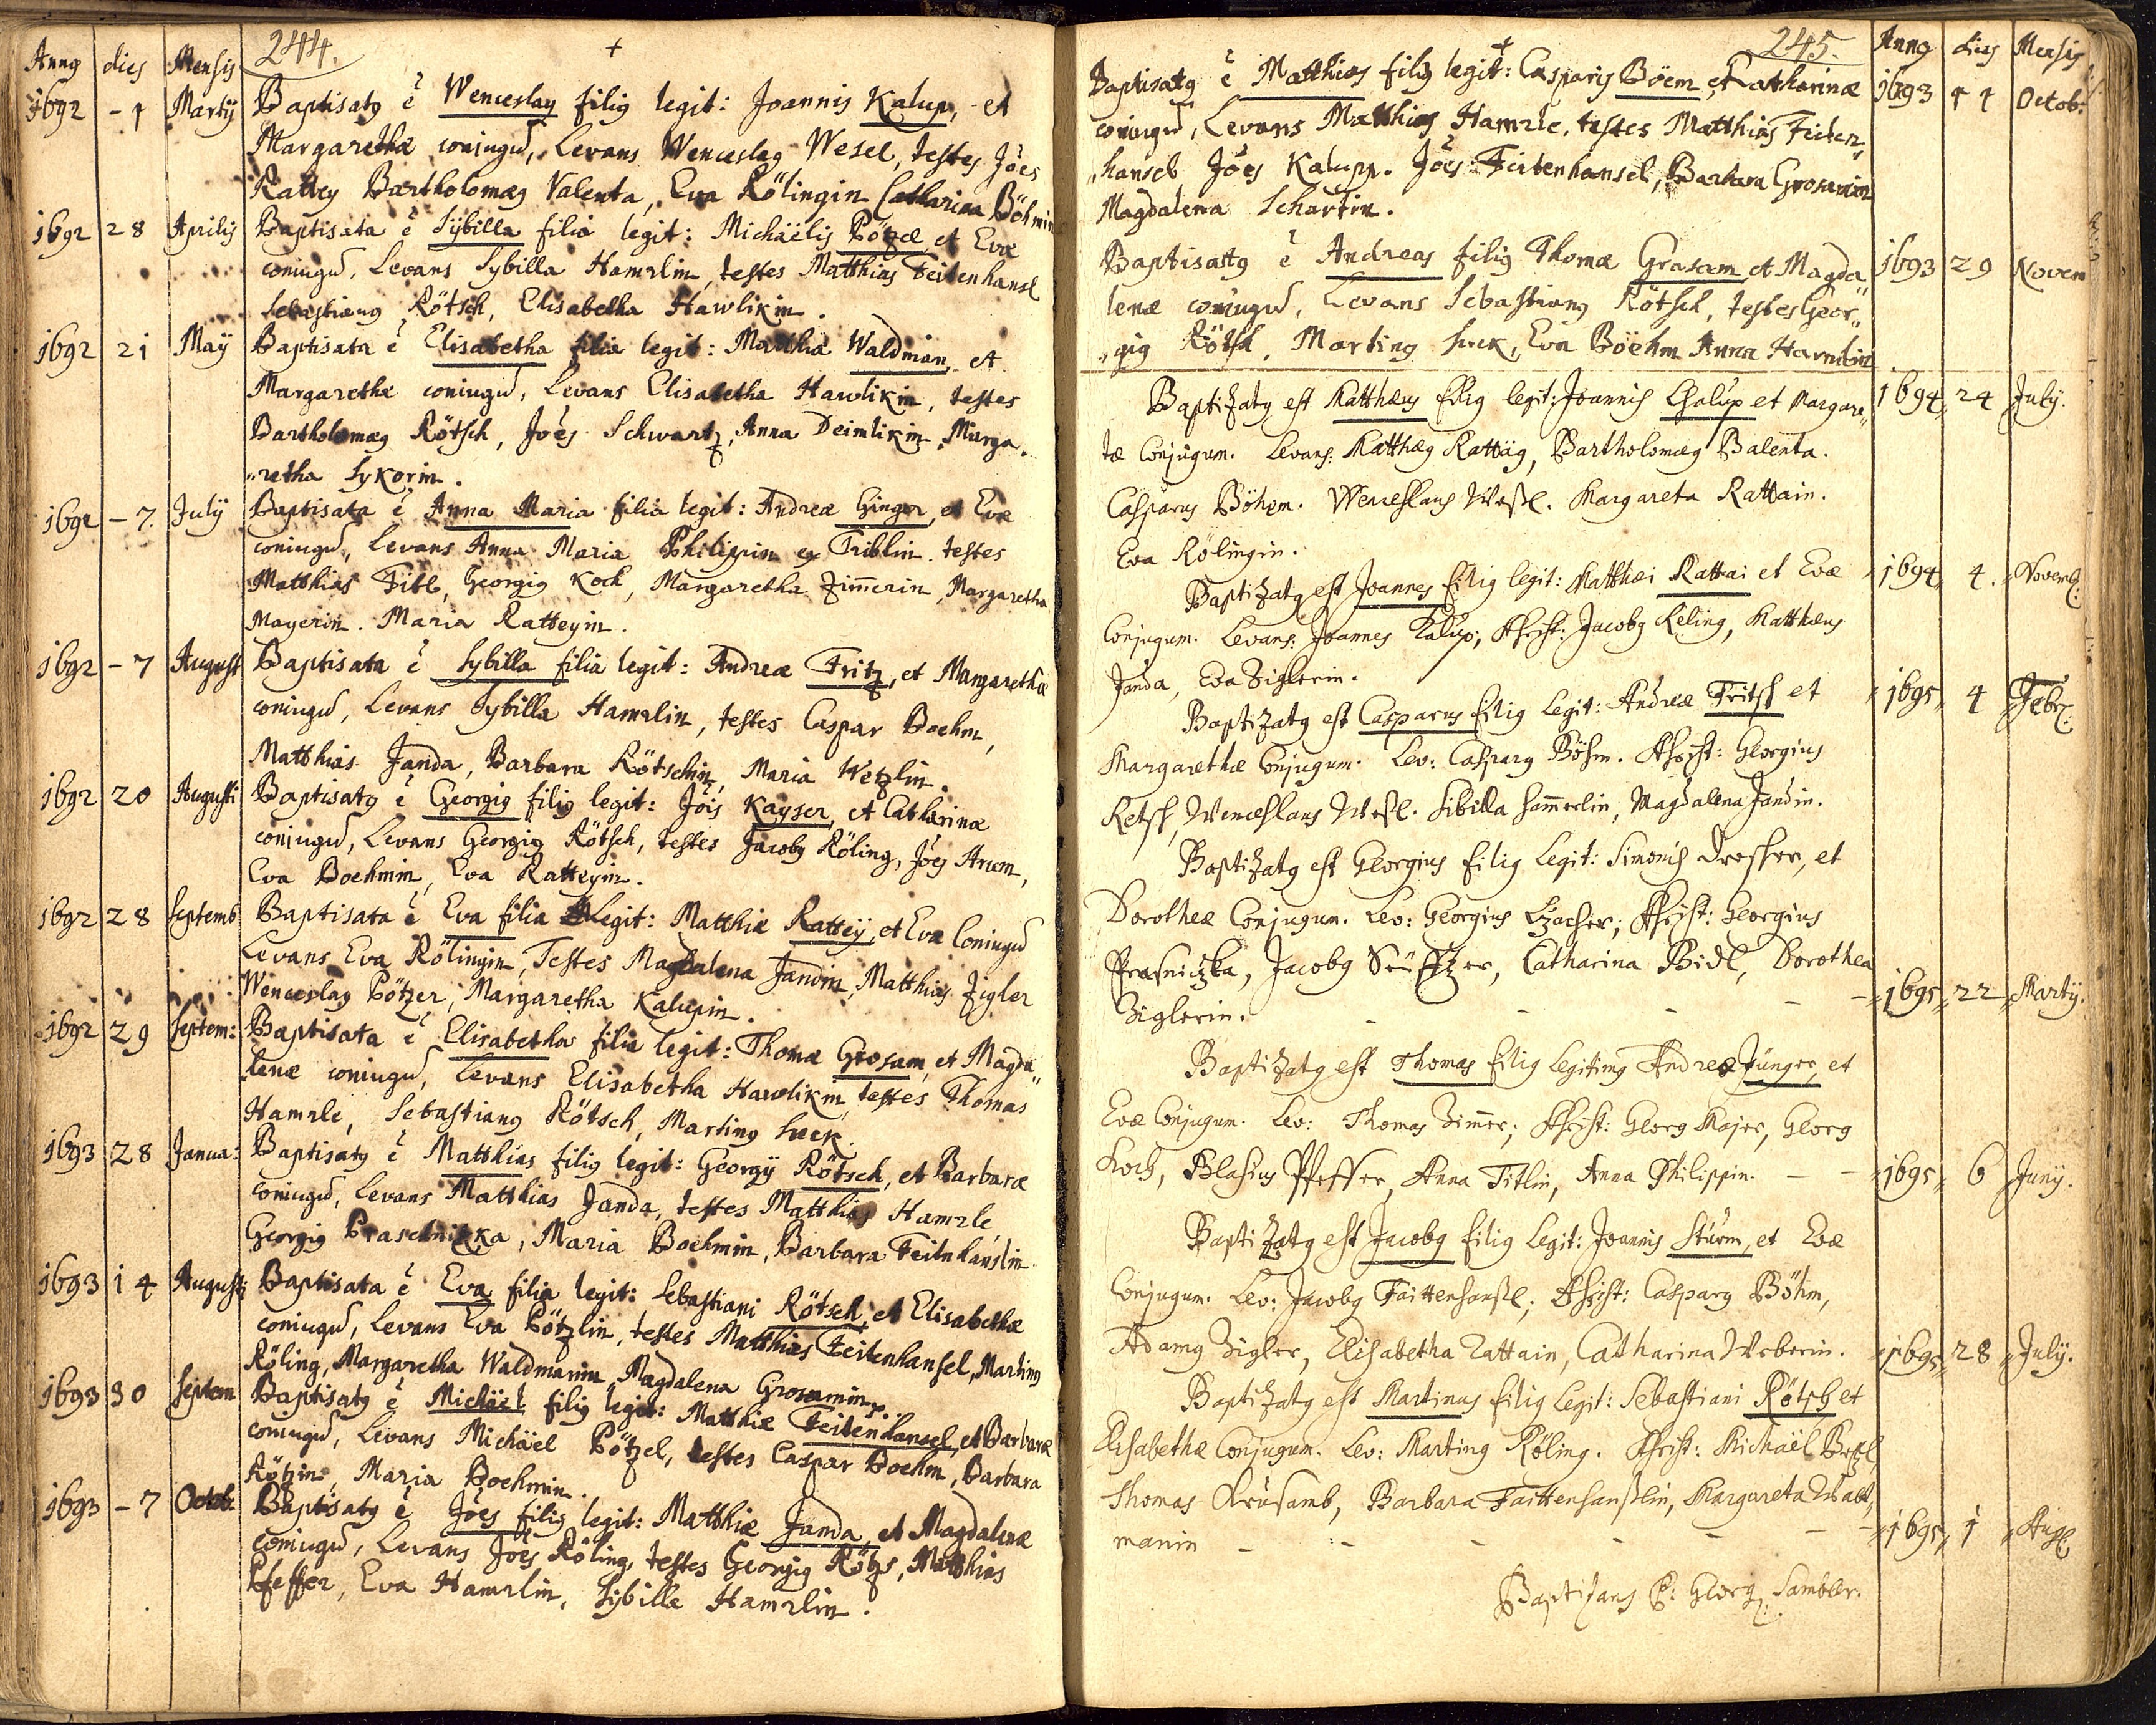 Anng dies Mensis 244. +
1692 - 1 Martij Baptisatg ẽ Wenceslag filig legit: Joannis Kalup, et
Margarethæ coniugũ, Levans Wenceslag Wesel, testes Jões
Rattey Bartholomæg Valenta, Eva Rölingin Catharina Böhmin
1692 28 Aprilis Baptisata ẽ Sÿbilla filia legit: Michäelis Pötzel et Evæ
coniugũ, Levans Sybilla Hamrlin, testes Matthias Feitenhansl
Sebastiang Rötsch, Elisabetha Hawlikin.
1692 21 Maÿ Baptisata ẽ Elisabetha filia legit: Matthiæ Waldman, et
Margarethæ coniugũ, Levans Elisabetha Hawlikin, testes
Bartholomæg Rötsch, Jões Schwartz, Anna Deimlikin, Marga„
„retha Sykorin.
1692 - 7. Julÿ Baptisata ẽ Anna Maria filia legit: Andreæ Ginger, et Evæ
coniugũ, Levans Anna Maria Philippin ex Triblin. testes
Matthias Titl, Georgig Koch, Margaretha Zim̃erin, Margaretha
Mayerin. Maria Ratteyin.
1692 - 7 August Baptisata ẽ Sybilla filia legit: Andreæ Fritz, et Margarethæ
coniugũ, Levans Sybilla Hamrlin, testes Caspar Boehm,
Matthias Janda, Barbara Rötschin, Maria Wetzlin.
1692 20 Augusti Baptisatg ẽ Georgig filig legit: Jõis Kayser, et Catharinæ
coniugũ, Levans Georgig Rötsch, testes Jacobg Röling, Jões Hrum,
Eva Boehmin, Eva Ratteyin.
1692 28 Septemb Baptisata ẽ Eva filia Legit: Matthiæ Rattëy, et Evæ Coniugũ
Levans Eva Rölingin, Testes Magdalena Jandin, Matthias Zigler
Wenceslag Pötzer, Margaretha Kalupin.
1692 29 Septem: Baptisata ẽ Elisabetha filia legit: Thomæ Grosam, et Magda„
lenæ coniugũ, Levans Elisabetha Hawlikin, testes Thomas
Hamrle, Sebastiang Rötsch, Marting Suek.
1693 28 Janua: Baptisatg ẽ Matthias filig legit: Georgÿ Rötsch, et Barbaræ
coniugũ, Levans Matthias Janda, testes Matthias Hamrle,
Georgig Praschnizka, Maria Boehmin, Barbara Feitnhanslin
1693 14 Augusti Baptisata ẽ Eva filia legit: Sebastiani Rötsch, et Elisabethæ
coniugũ, Levans Eva Pötzlin, testes Matthias Feitenhansel, Marting
Röling, Margaretha Waldmanin, Magdalena Grosamin.
1693 30 Septem Baptisatg ẽ Michäel filig legit: Matthiæ Feitenhansel, et Barbaræ
coniugũ, Levans Michäel Pötzel, testes Caspar Boehm, Barbara
Rötzin, Maria Boehmin.
1693 - 7 Octob: Baptisatg ẽ Jões filig legit: Matthiæ Janda, et Magdalenæ
coniugũ, Levans Jões Röling, testes Georgig Rötzs, Matthias
Pfeffer, Eva Hamrlin, Sybilla Hamrlin.
+ 245. Anng dies Mensis
Baptisatg ẽ Matthias filig legit: Casparis Böem, et Katharinæ 1693 11 Octob:
coniugũ, Levans Matthias Hamrle, testes Matthias Feiten„
„hansel Jões Kalupp. Jões Feitenhansel, Barbara Grosamin
Magdalena Schartin.
Baptisatg ẽ Andreas filig Thomæ Grasam et Magda„ 1693 29 Novem
lenæ coniugũ, Levans Sebastiang Rötsch, testes Geor„
„gig Rötsch, Marting Suek, Eva Böehm Anna Hamrlin
Baptizatg est Matthæus filig legit: Joannis Chalup et Margare„ 1694 24 July.
tæ Conjugum. Levans: Matthæg Rattäg, Bartholomæg Balenta.
Casparus Böhem. Wenceslaus Weßl. Margareta Rattain.
Eva Rölingin.
Baptizatg est Joannes filig legit: Matthæi Rattai et Evæ 1694 4. Novemb:
Conjugum. Levans: Joannes Kalup, Jacobg Reling, Matthæus
Janda, Eva Ziglerin.
Baptizatg est Casparus filig Legit: Andreæ Fritsch et 1695 4 Febr:
Margarethæ Conjugum. Lev: Casparg Böhm. Georgius
Retsch, Wenceslaus Weßl. Sibilla Ham̃erlin, Magdalena Jandin.
Baptizatg est Georgius filig Legit: Simonis Drescher, et
Dorotheæ Conjugum. Lev: Georgius Czacher; Georgius
Prasniczka, Jacobg Seüffzer, Catharina Bidl, Dorothea
Ziglerin. - - - - - 1695 22 Martÿ.
Baptizatg est Thomas filig Legitimg Andreæ Jünger, et
Evæ Conjugum. Lev: Thomas Zim̃er; Georg Majer, Georg
Koch, Blasius Pfeffer, Anna Titlin, Anna Philippin. - - 1695 6 Junÿ.
Baptizatg est Jacobg filig Legit: Joannis Sturm, et Evæ
Conjugum. Lev: Jacobg Faittenhanßl; Casparg Böhm,
Adamg Zigler, Elisabetha Rattain, Catharina Weberin. 1695 28 Julÿ.
Baptizatg est Martinus filig Legit: Sebastiani Rötsch et
Elisabethæ Conjugum. Lev: Marting Röling. Michaël Betzl,
Thomas Krusamb, Barbara Faittenhanßlin, Margareta Waldt„
manin - - - - - - 1695 1 Aug:
Baptizans P: Georg Sambler.